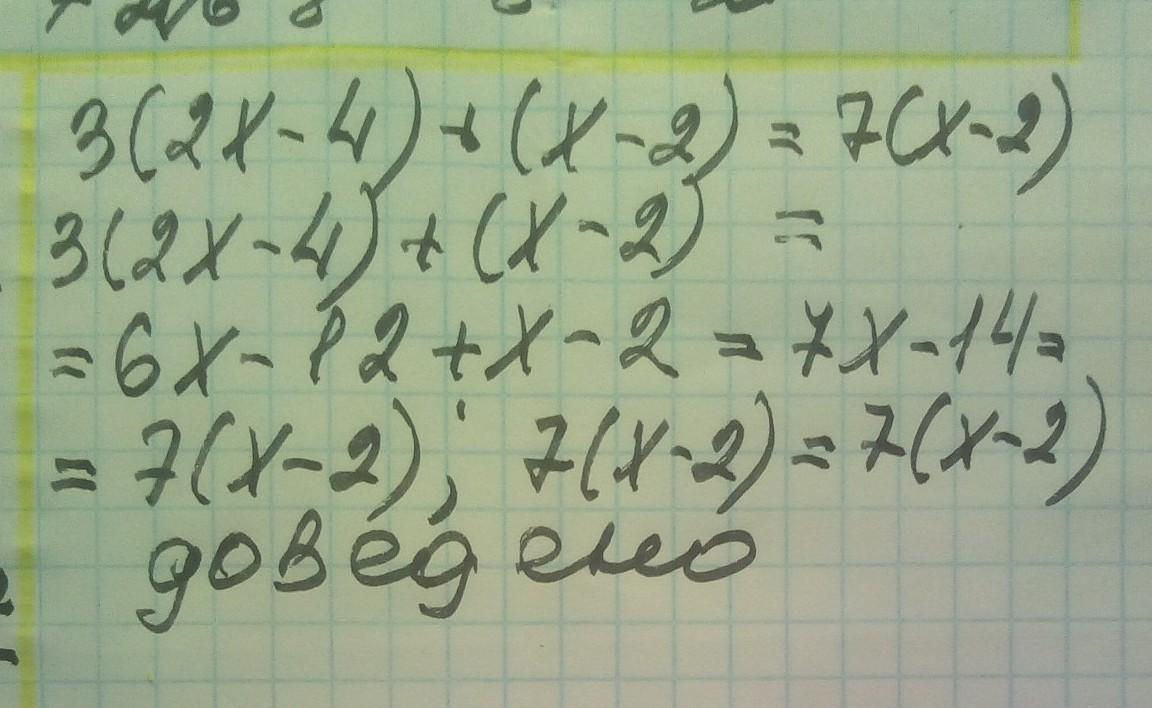 3(2x-4)+(x-2)=7(x-2)
3(2x-4)+(x-2) =
=6x-12+x-2=7x-14=
=7(x-2); 7(x-2)=7(x-2)
доведено